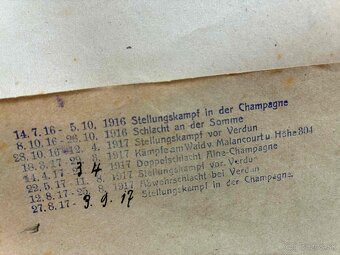 14.7.16 - 5.10. 1916 Stellungskampf in der Champagne
8.10.16 - 26.10. 1916 Schlacht an der Somme
28.10.16 - 12. 4. 1917 Stellungskampf vor Verdun
18.3.17 - 1917 Kämpfe am Wald v. Malancourt u. Höhe 304
14.4.17 - 1917 Doppelschlacht Aine-Champagne
22.5.17 - 11. 8. 1917 Stellungskampf vor Verdun
12.8.17 - 25. 8. 1917 Abwehrschlacht bei Verdun
27.8.17 - 3.9.17 Stellungskampf in der Champagne.